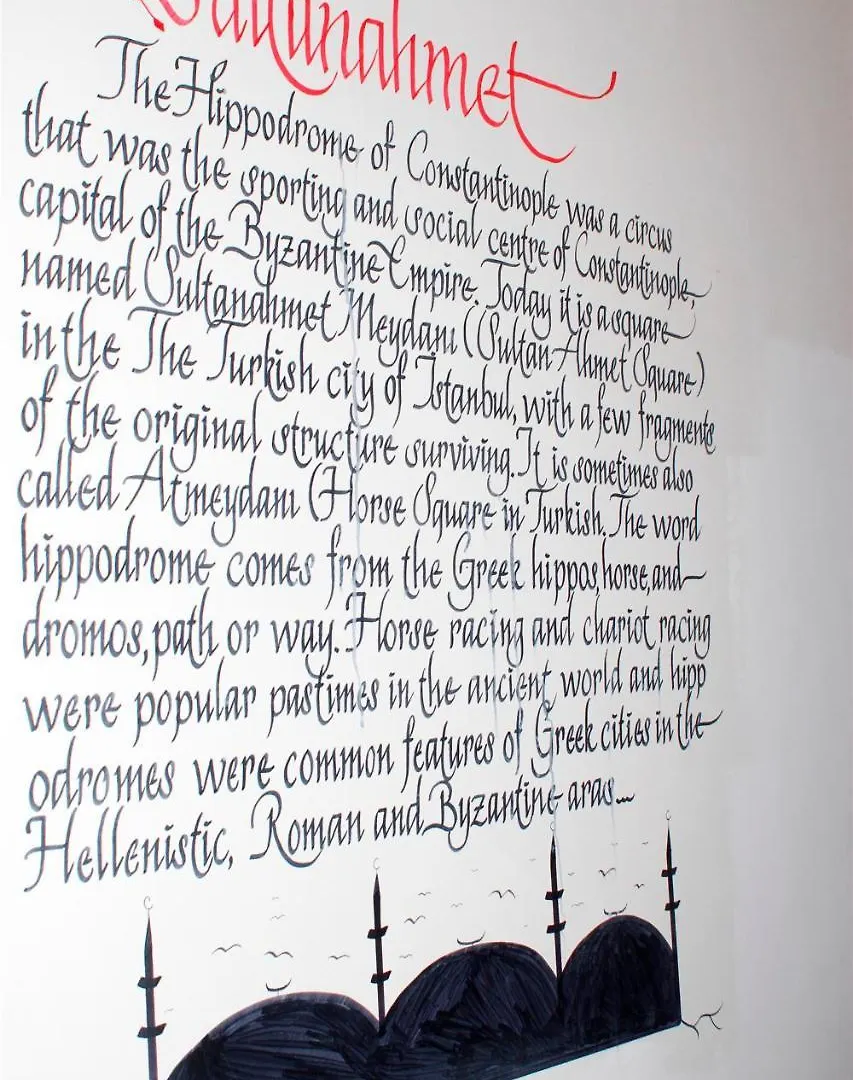 Sultanahmet
The Hippodrome of Constantinople was a circus
that was the sporting and social centre of Constantinople,
capital of the Byzantine Empire. Today it is a square
named Sultanahmet Meydanı (Sultan Ahmet Square)
in the The Turkish city of Istanbul, with a few fragments
of the original structure surviving. It is sometimes also
called Atmeydanı (Horse Square in Turkish. The word
hippodrome comes from the Greek hippos, horse, and
dromos, path or way. Horse racing and chariot racing
were popular pastimes in the ancient world and hipp
odromes were common features of Greek cities in the
Hellenistic, Roman and Byzantine aras...